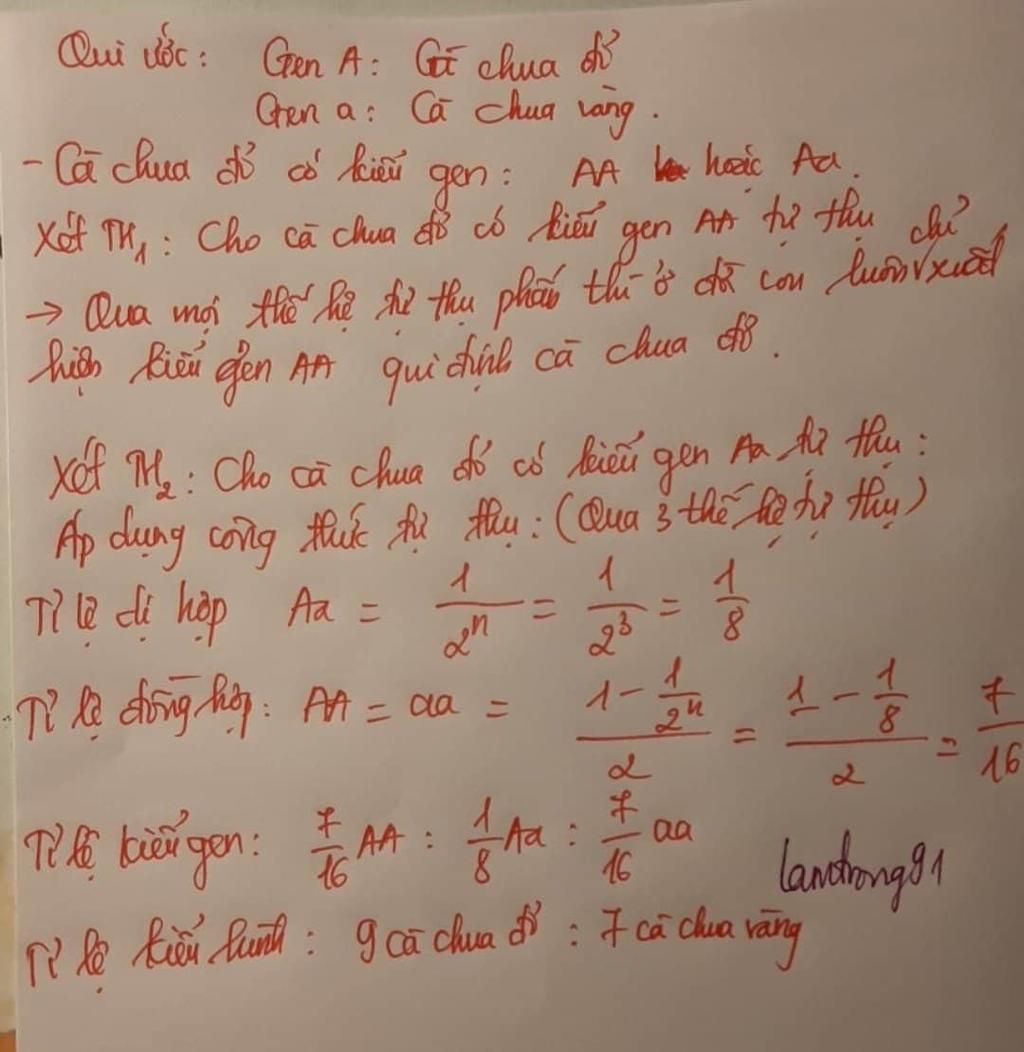 Qui ước: Gen A: Cà chua đỏ
Gen a: Cà chua vàng.
- Cà chua đỏ có kiểu gen: AA hoặc Aa.
Xét TH1: Cho cà chua đỏ có kiểu gen AA tự thụ
→ Qua mọi thế hệ tự thụ phấn thì ở đời con luôn chỉ xuất
hiện kiểu gen AA qui định cà chua đỏ.
Xét TH2: Cho cà chua đỏ có kiểu gen Aa tự thụ:
Áp dụng công thức tự thụ: (Qua 3 thế hệ tự thụ)
Tỉ lệ dị hợp Aa = 1/2^n = 1/2^3 = 1/8
Tỉ lệ đồng hợp: AA = aa = (1 - 1/2^n)/2 = (1 - 1/8)/2 = 7/16
Tỉ lệ kiểu gen: 7/16 AA : 1/8 Aa : 7/16 aa
lamtrong91
Tỉ lệ kiểu hình: 9 cà chua đỏ : 7 cà chua vàng